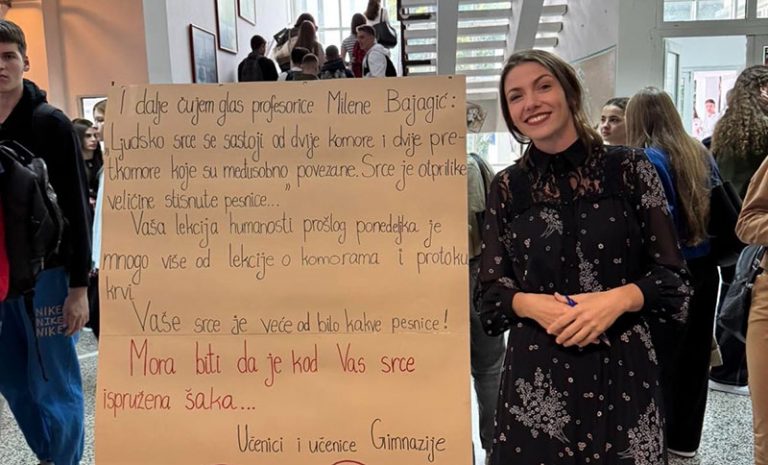 "I dalje čujem glas profesorice Milene Bajagić:
"Ljudsko srce se sastoji od dvije komore i dvije pre-
tkomore koje su međusobno povezane. Srce je otprilike
veličine stisnute pesnice..."
Vaša lekcija humanosti prošlog ponedjeljka je
mnogo više od lekcije o komorama i protoku
krvi
Vaše srce je veće od bilo kakve pesnice!
Mora biti da je kod Vas srce
ispružena šaka...
Učenici i učenice Gimnazije
NIKE
NIKE
NIKE